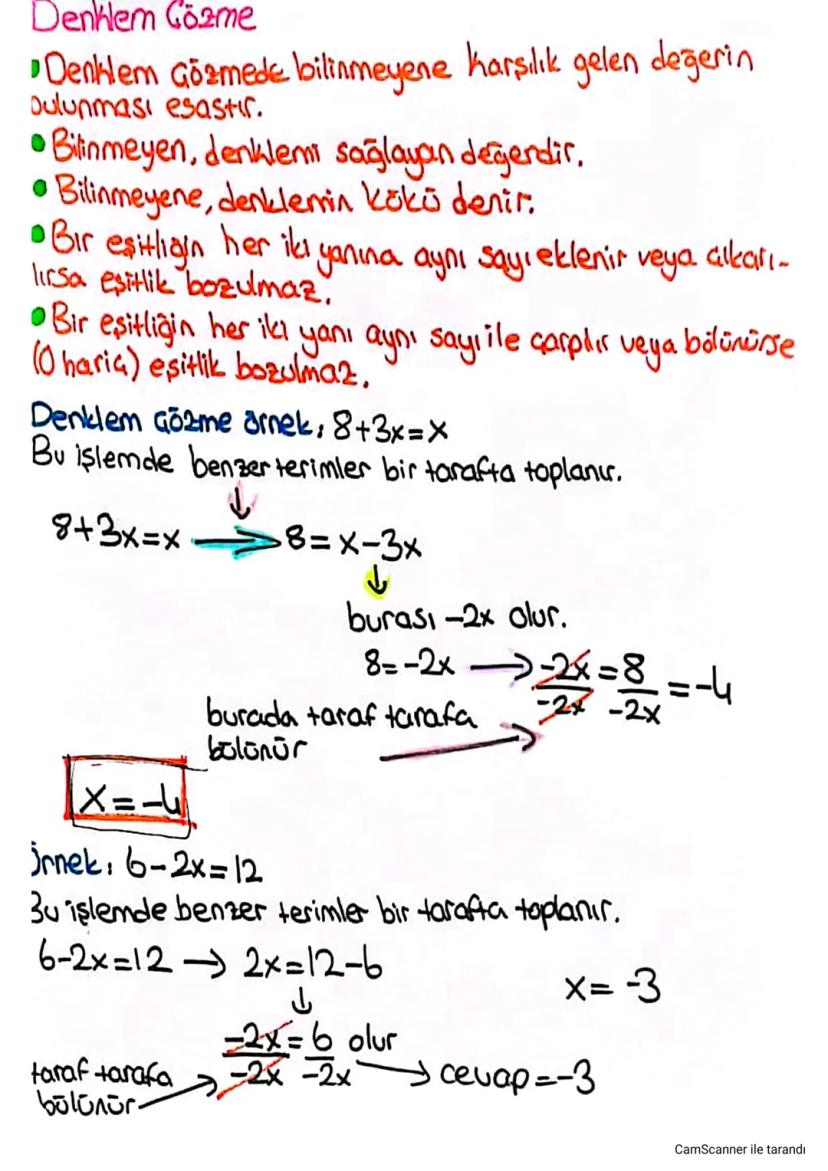 Denklem Çözme
Denklem Çözmede bilinmeyene karşılık gelen değerin
bulunması esastır.
Bilinmeyen, denklemi sağlayan değerdir.
Bilinmeyene, denklemin kökü denir.
Bir eşitliğin her iki yanına aynı sayı eklenir veya çıkarı-
lırsa eşitlik bozulmaz.
Bir eşitliğin her iki yanı aynı sayı ile çarpılır veya bölünürse
(0 hariç) eşitlik bozulmaz.
Denklem Çözme örnek: 8+3x=x
Bu işlemde benzer terimler bir tarafta toplanır.
8+3x=x → 8=x-3x
↓
burası -2x olur.
8=-2x → -2x/-2x = 8/-2x = -4
burada taraf tarafa
bölünür
x=-4
Örnek: 6-2x=12
Bu işlemde benzer terimler bir tarafta toplanır.
6-2x=12 → 2x=12-6
x=-3
↓
-2x/-2x = 6/-2x olur
taraf tarafa
bölünür
→ cevap=-3
CamScanner ile tarandı